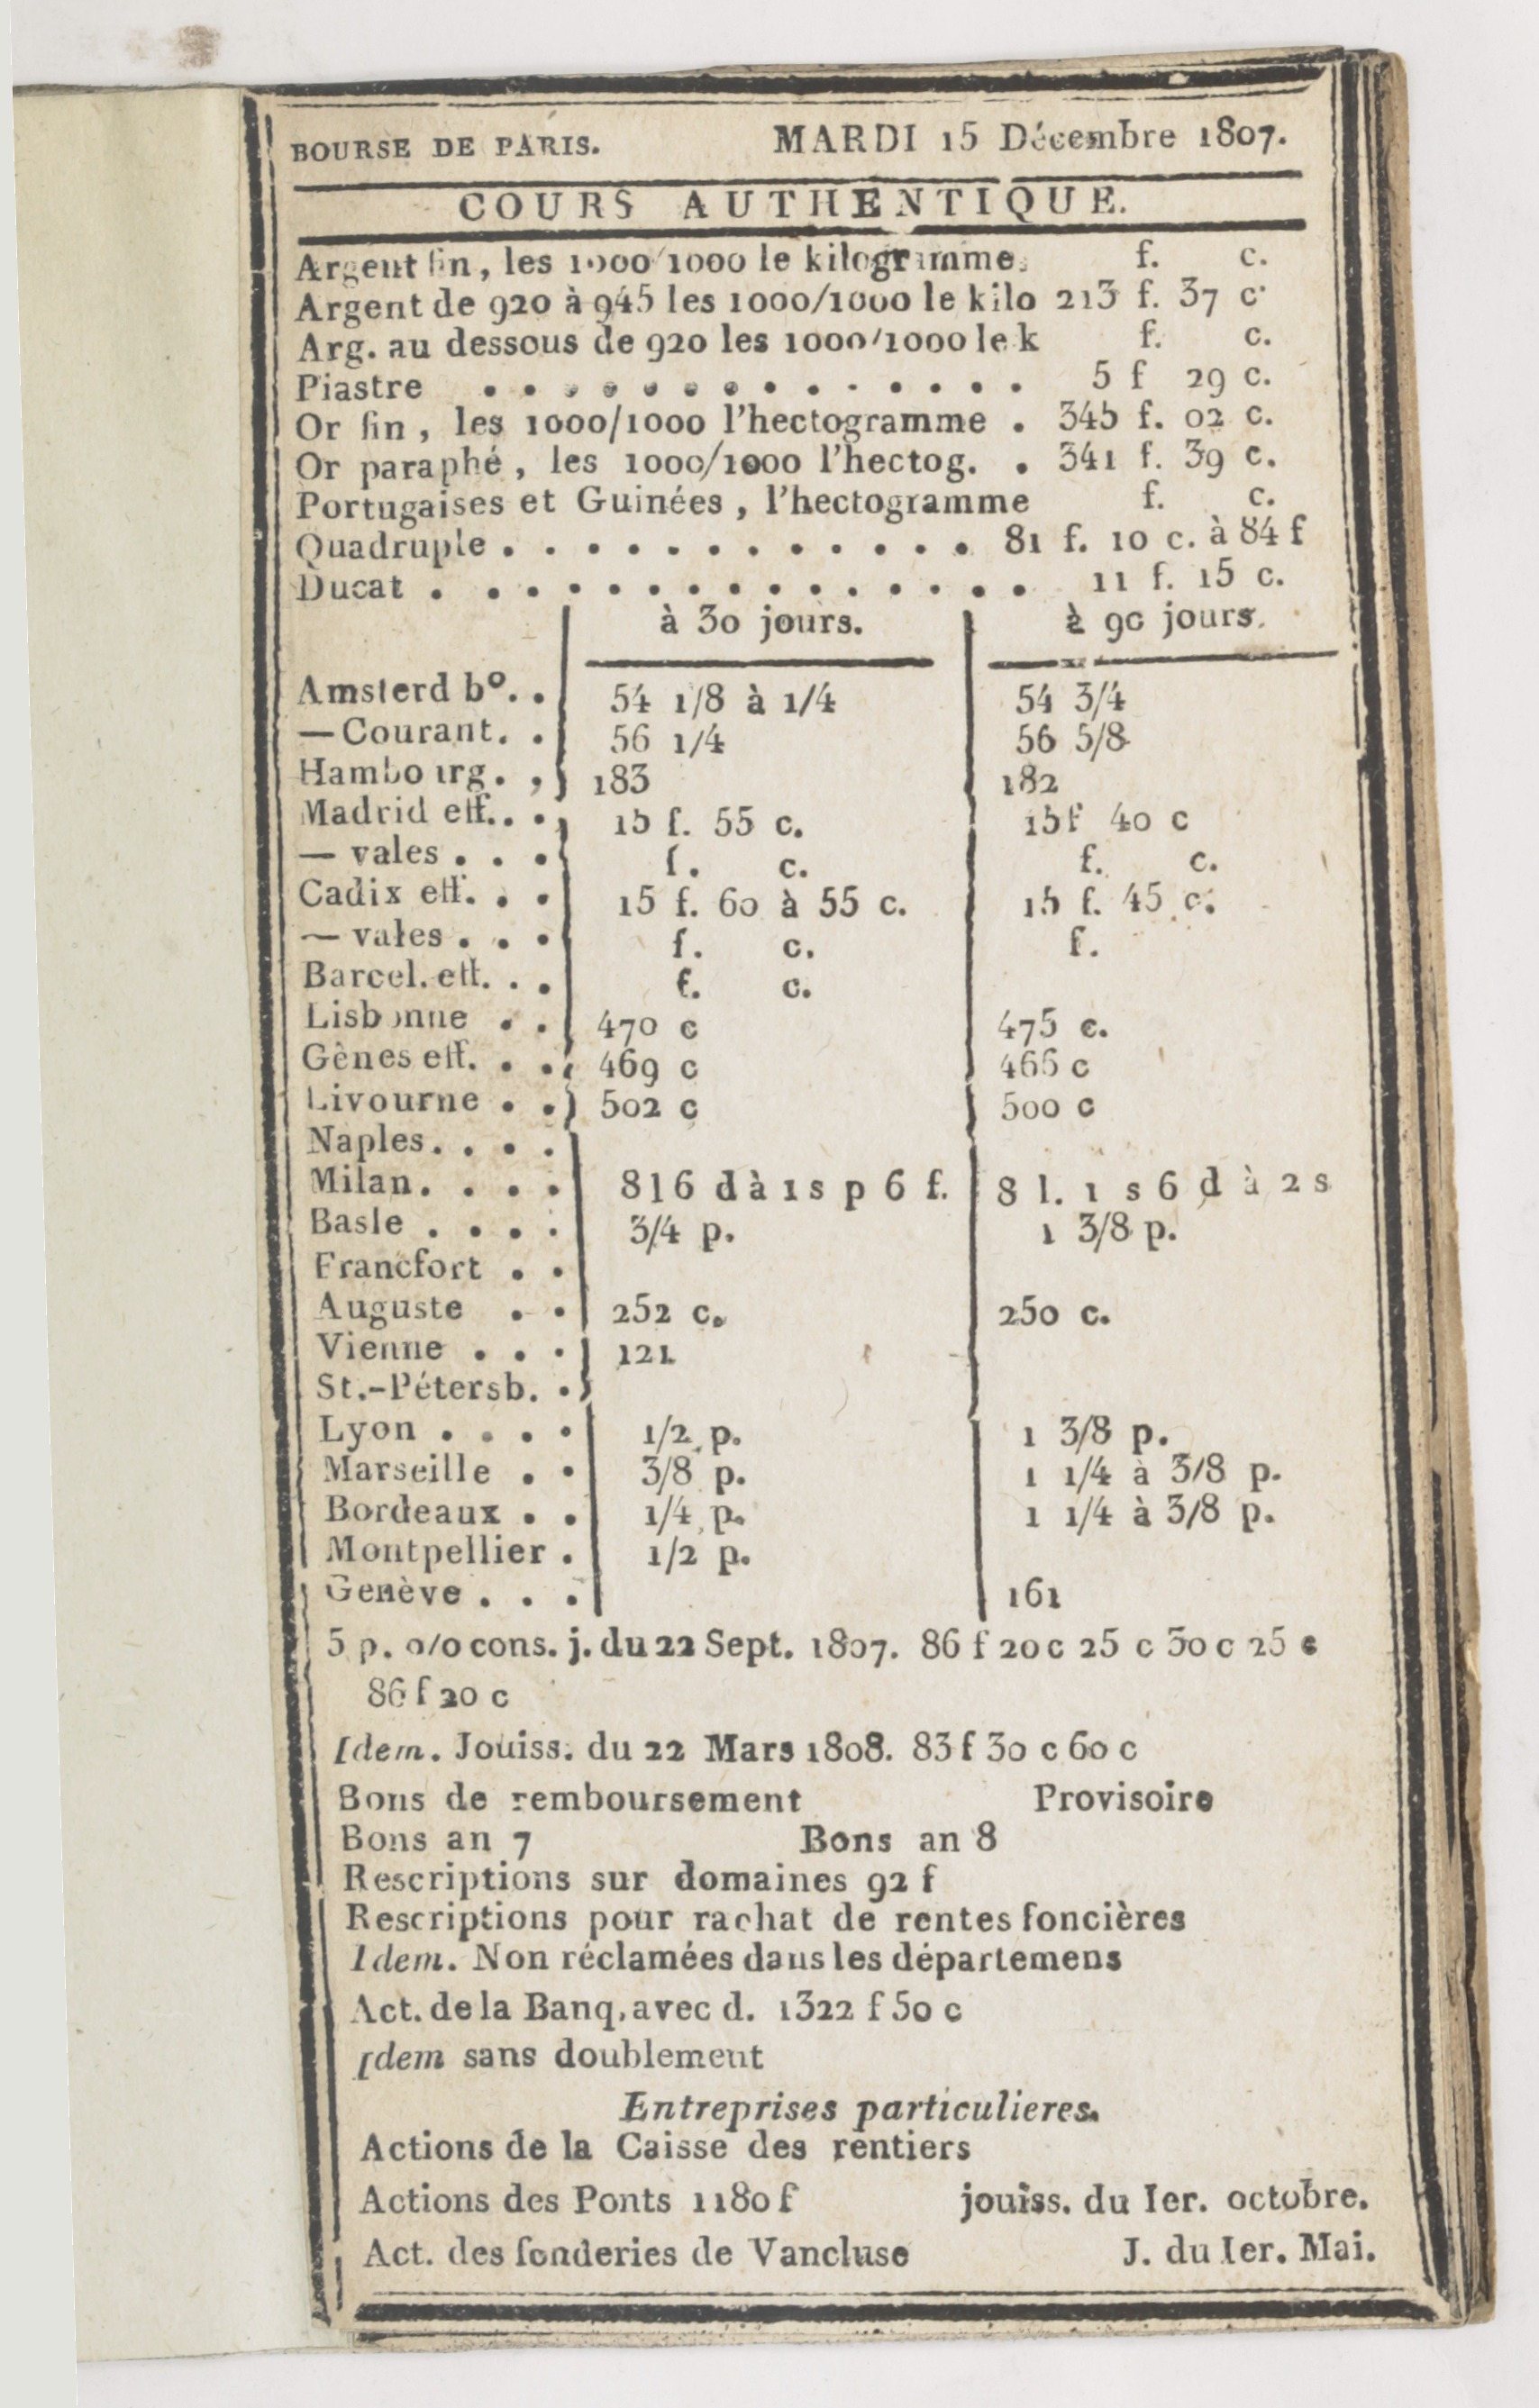 BOURSE DE PARIS. MARDI 15 Décembre 1807.
COURS AUTHENTIQUE.
Argent fin, les 1000/1000 le kilogramme. f. c.
Argent de 920 à 945 les 1000/1000 le kilo 213 f. 37 c.
Arg. au dessous de 920 les 1000/1000 le k f. c.
Piastre . . . . . . . . . . . . . . 5 f 29 c.
Or fin, les 1000/1000 l'hectogramme . 345 f. 02 c.
Or paraphé, les 1000/1000 l'hectog. . 341 f. 39 c.
Portugaises et Guinées, l'hectogramme f. c.
Quadruple . . . . . . . . . . . . 81 f. 10 c. à 84 f
Ducat . . . . . . . . . . . . . . . 11 f. 15 c.
à 30 jours. à 90 jours.
Amsterd bº. . 54 1/8 à 1/4 54 3/4
—Courant. . 56 1/4 56 5/8
Hambourg. , 183 182
Madrid eff. . . 15 f. 55 c. 15 f 40 c
— vales . . . f. c. f. c.
Cadix eff. . . 15 f. 60 à 55 c. 15 f. 45 c.
— vales . . . f. c. f.
Barcel. eff. . . f. c.
Lisbonne . . 470 c 475 c.
Gènes eff. . . 469 c 466 c
Livourne . . 502 c 500 c
Naples. . . .
Milan. . . . 8 l 6 d à 1 s p 6 f. 8 l. 1 s 6 d à 2 s
Basle . . . . 3/4 p. 1 3/8 p.
Francfort . .
Auguste . . 252 c. 250 c.
Vienne . . . 121
St.-Pétersb. .
Lyon . . . . 1/2 p. 1 3/8 p.
Marseille . . 3/8 p. 1 1/4 à 3/8 p.
Bordeaux . . 1/4 p. 1 1/4 à 3/8 p.
Montpellier . 1/2 p.
Genève . . . 161
5 p. o/o cons. j. du 22 Sept. 1807. 86 f 20 c 25 c 30 c 25 c
86 f 20 c
Idem. Jouiss. du 22 Mars 1808. 83 f 30 c 60 c
Bons de remboursement Provisoire
Bons an 7 Bons an 8
Rescriptions sur domaines 92 f
Rescriptions pour rachat de rentes foncières
Idem. Non réclamées dans les départemens
Act. de la Banq. avec d. 1322 f 50 c
Idem sans doublement
Entreprises particulieres.
Actions de la Caisse des rentiers
Actions des Ponts 1180 f jouiss. du Ier. octobre.
Act. des fonderies de Vancluse J. du Ier. Mai.